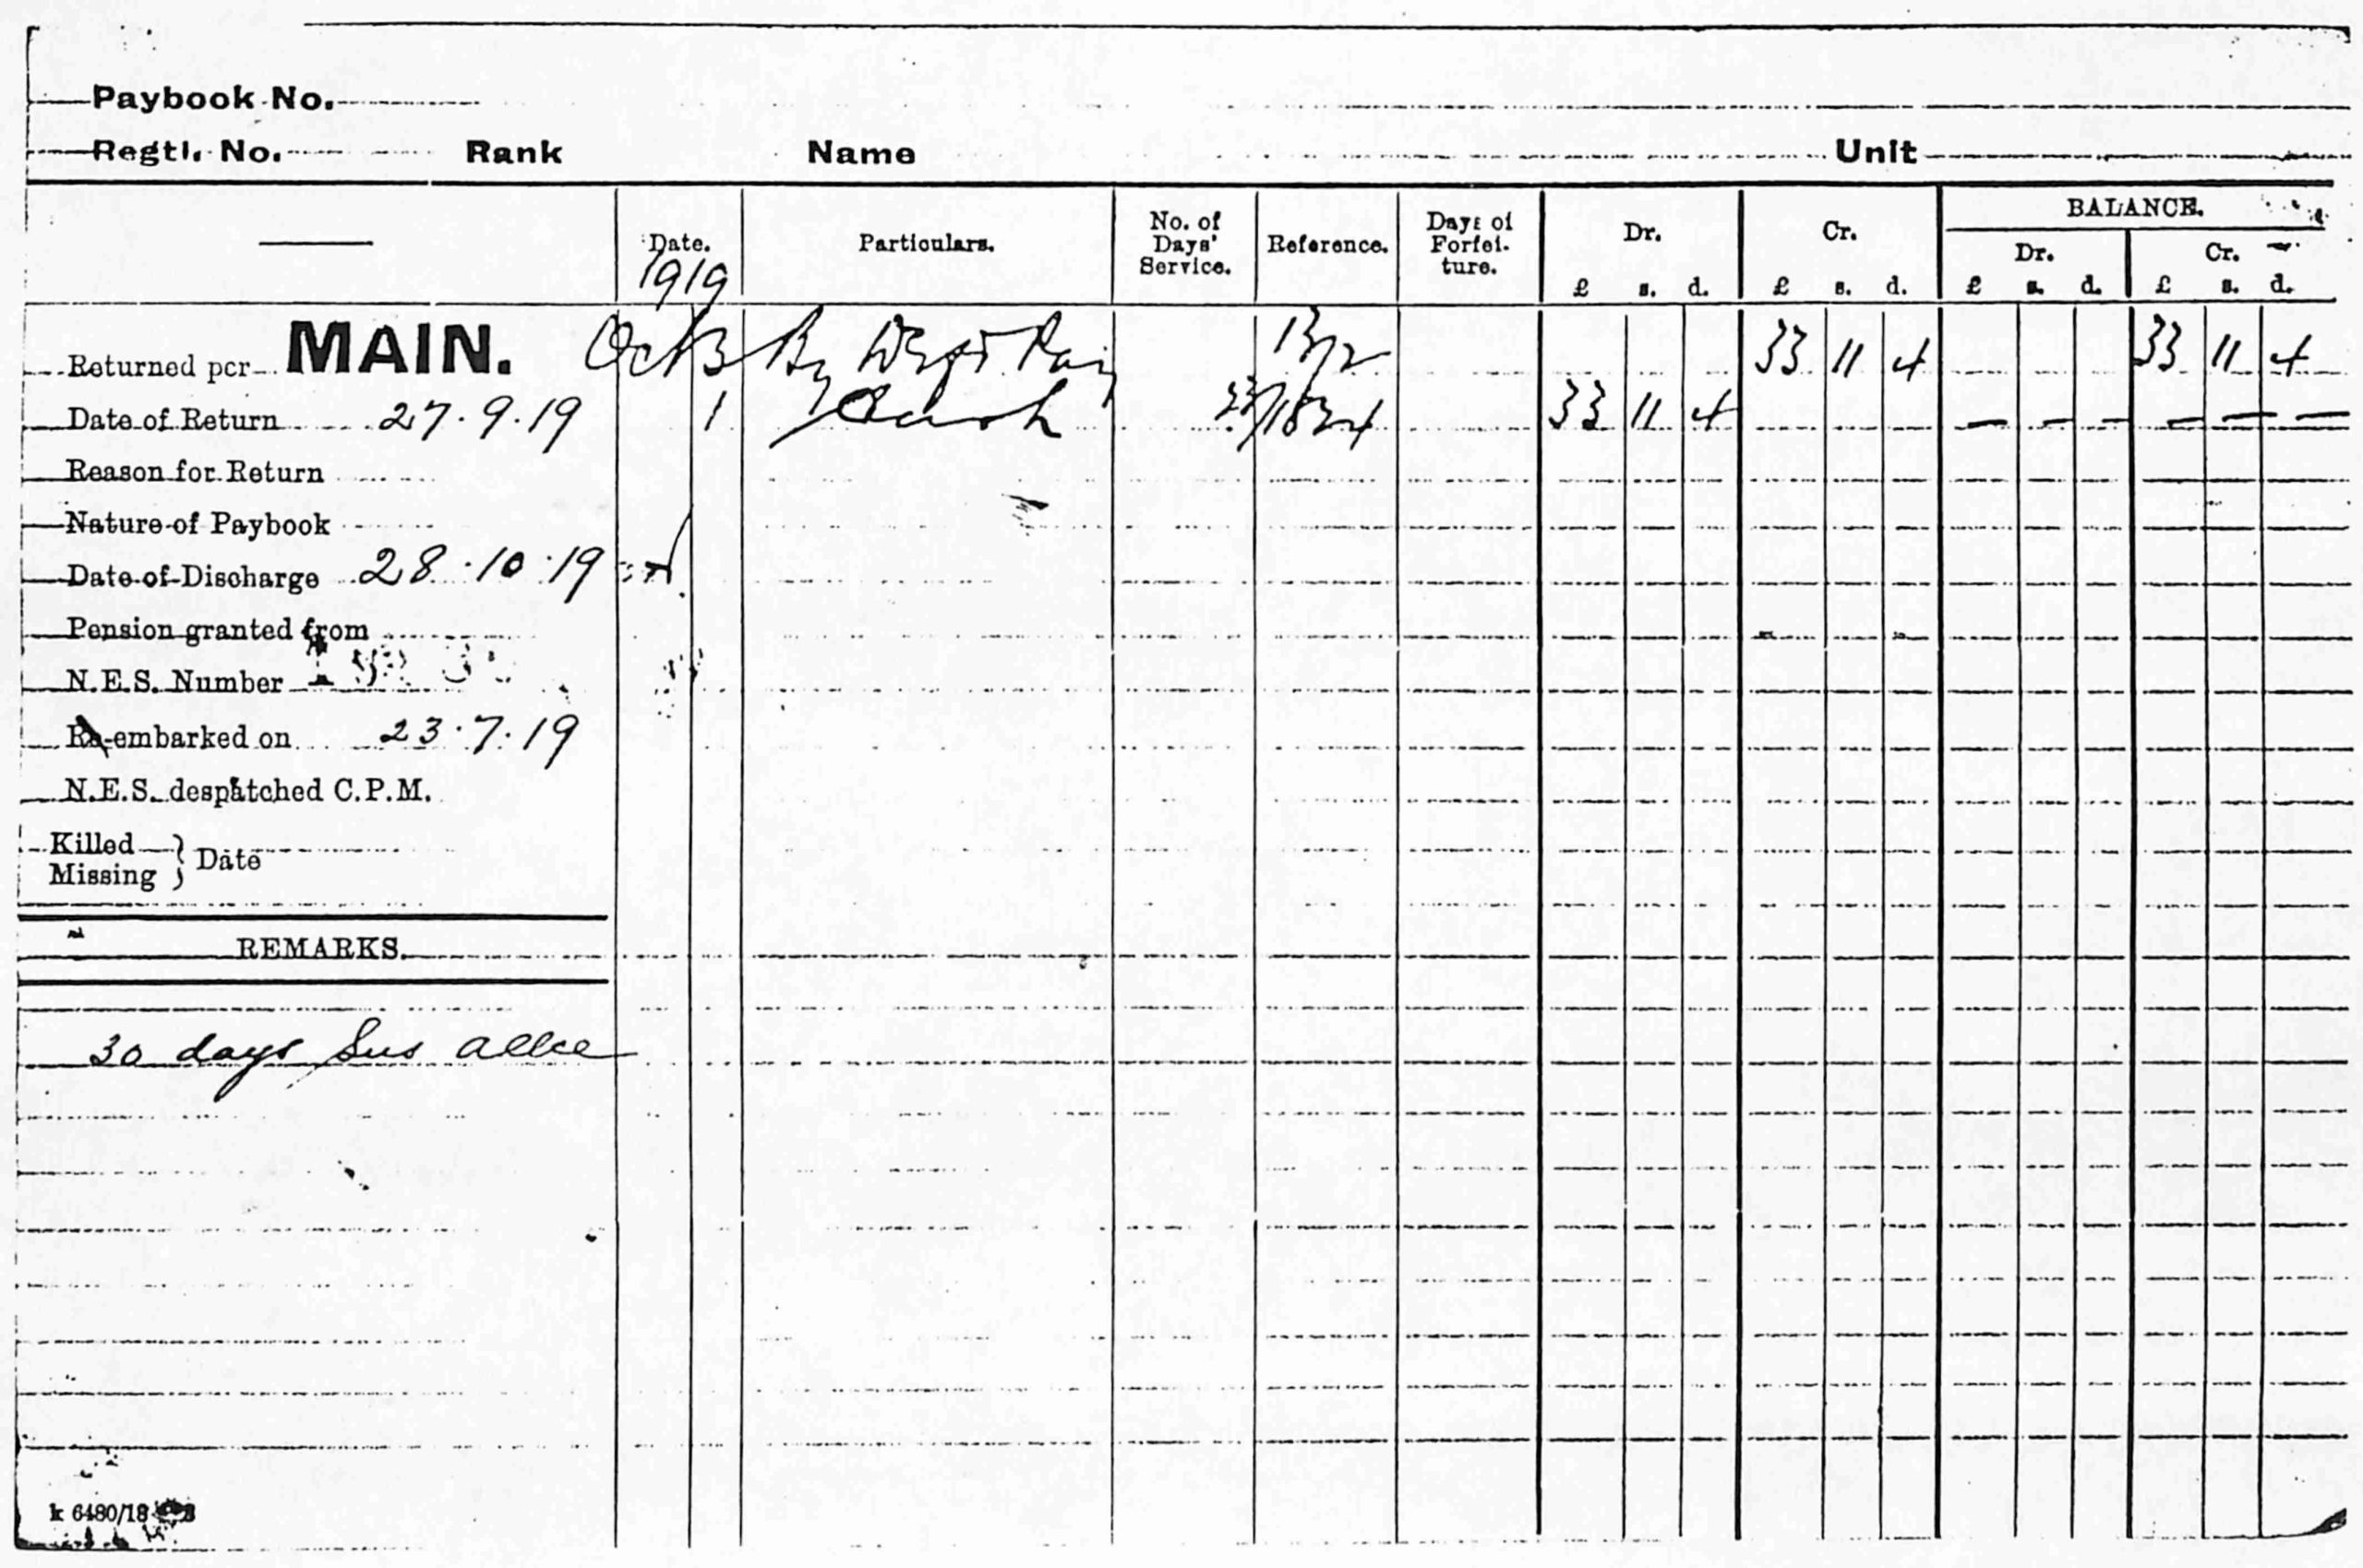 Paybook No.
Regtl. No. Rank Name Unit
Date. Particulars. No. of Days' Service. Reference. Days of Forfei-ture. Dr. Cr. BALANCE.
Dr. Cr.
1919
£ s. d. £ s. d. £ s. d. £ s. d.
Returned per MAIN. Oct 3 By Pay 33 11 4 33 11 4
Date of Return 27.9.19 1 Cash 33 11 4 — — — — — —
Reason for Return
Nature of Paybook
Date of Discharge 28.10.19
Pension granted from
N.E.S. Number
Re-embarked on 23.7.19
N.E.S. despatched C.P.M.
Killed
Missing } Date
REMARKS.
30 days Sus allce
k 6480/18